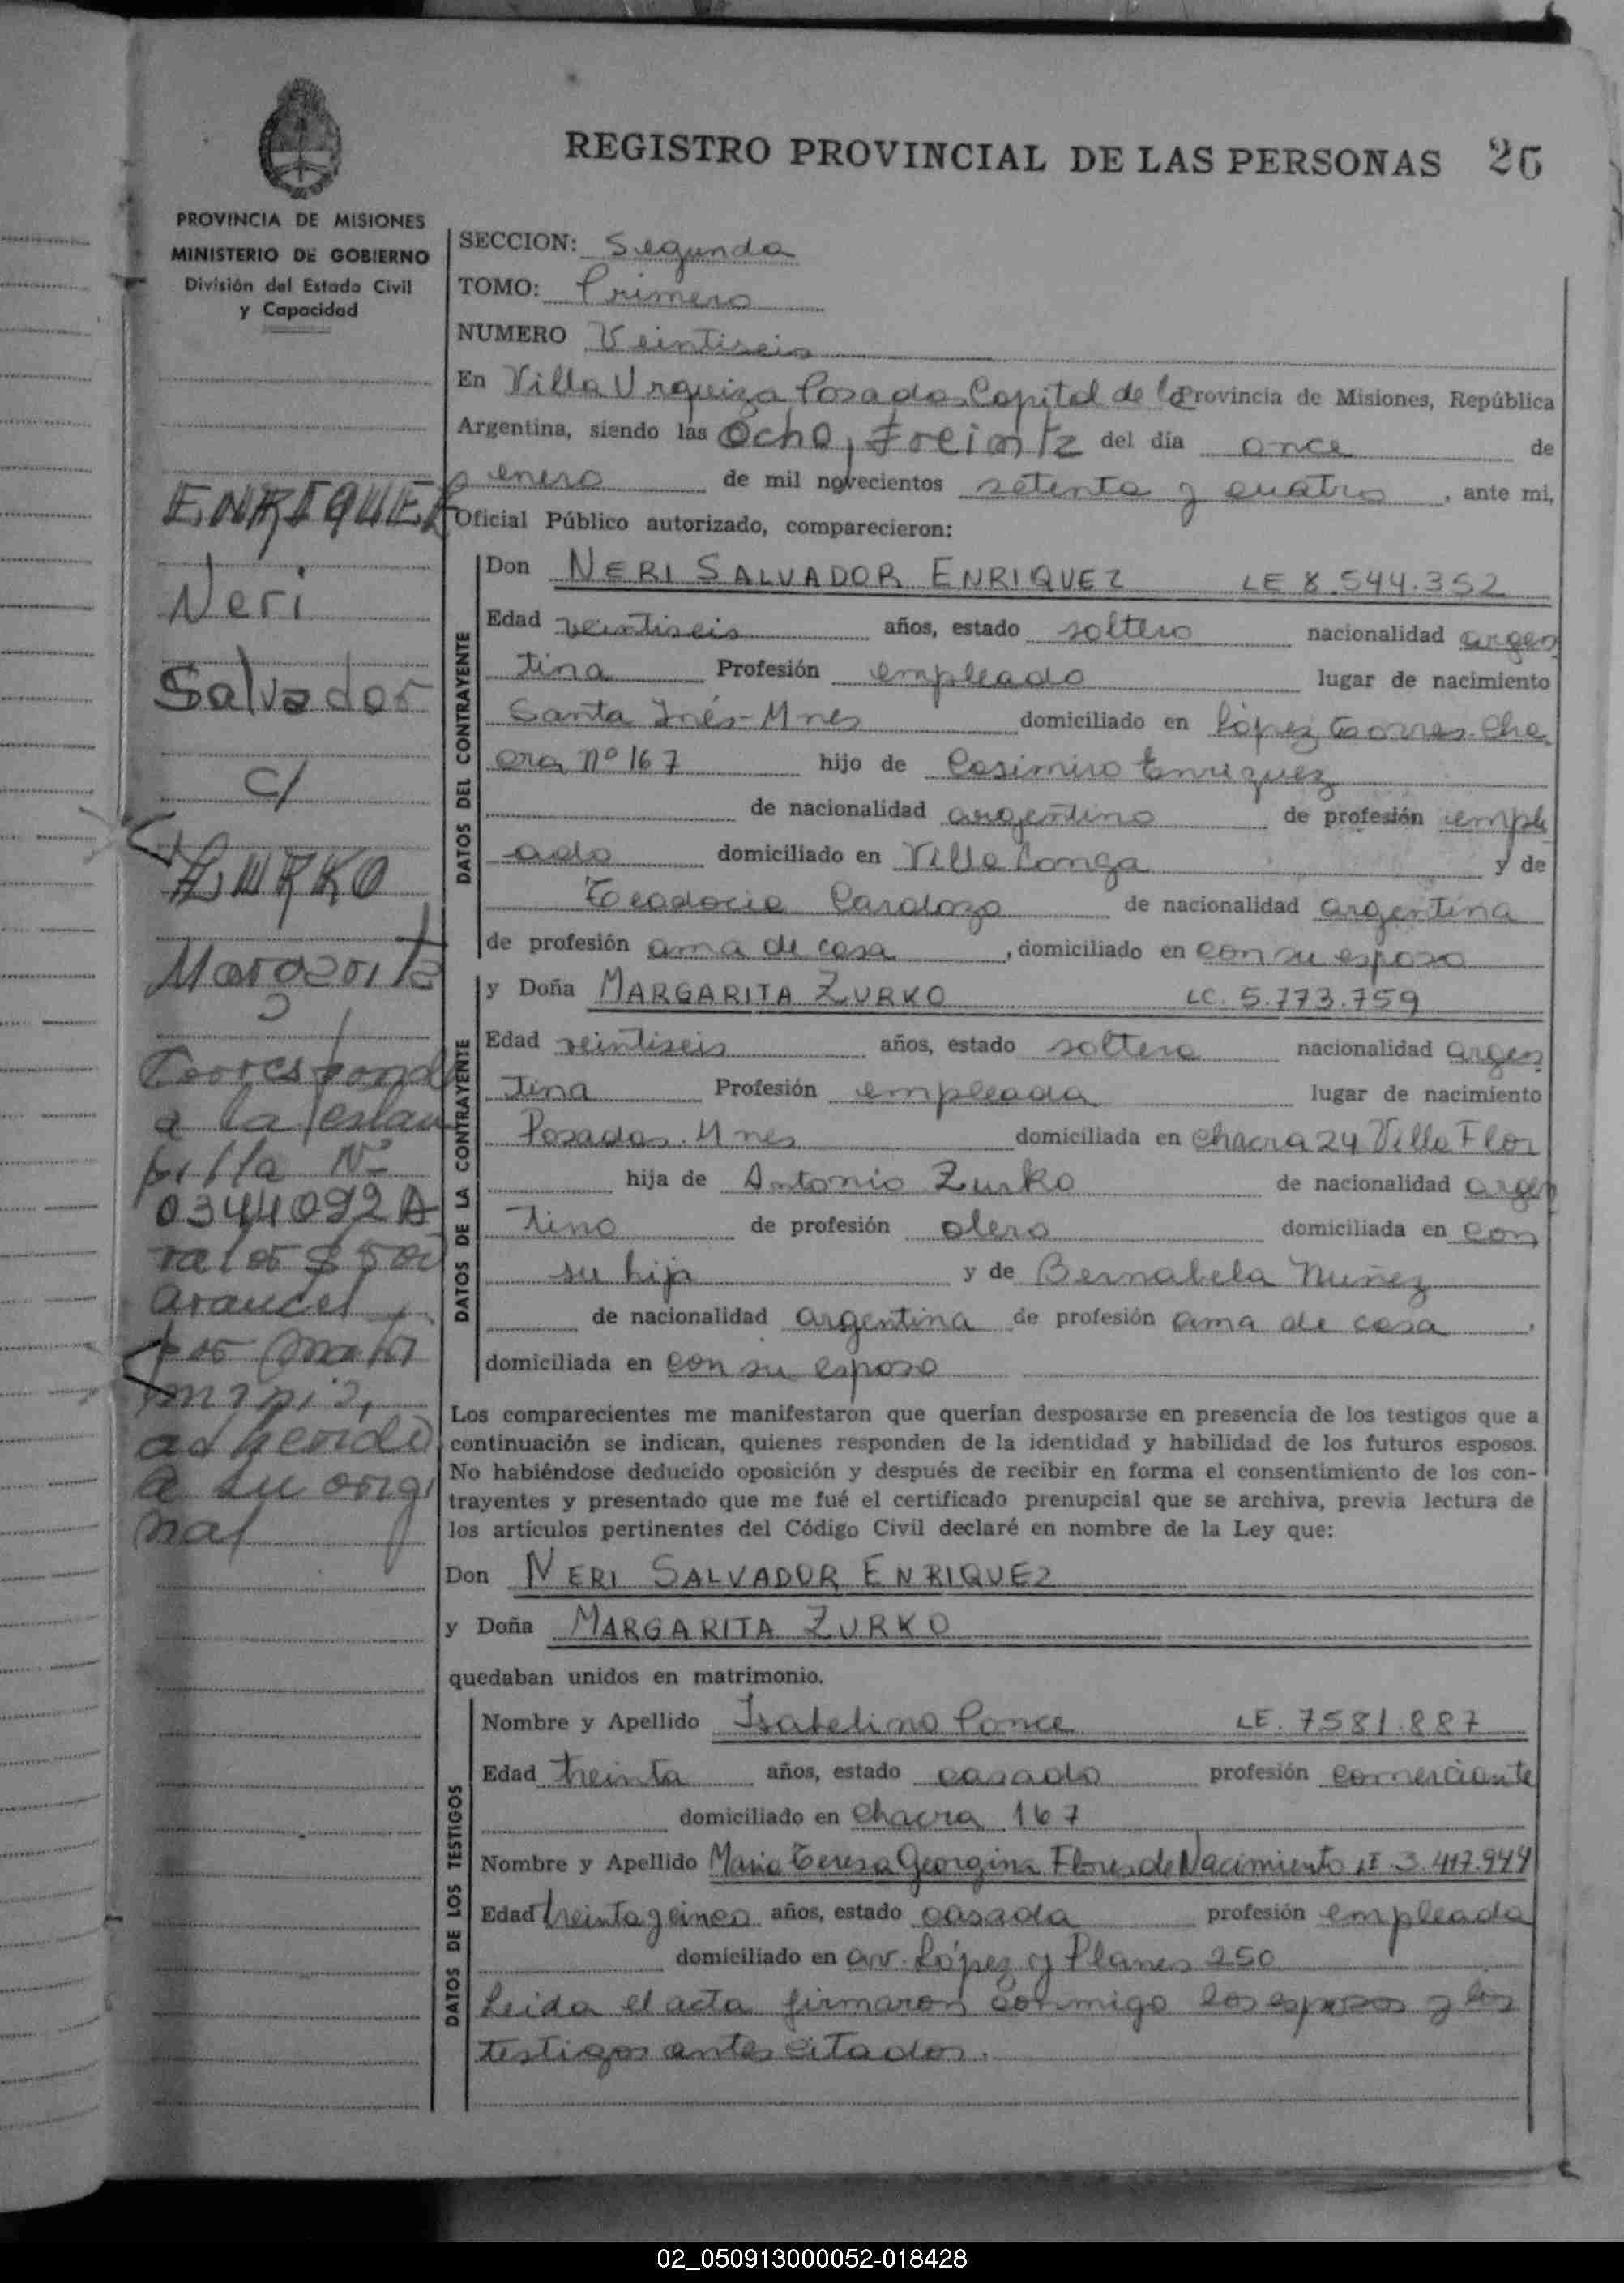 REGISTRO PROVINCIAL DE LAS PERSONAS 26
PROVINCIA DE MISIONES
MINISTERIO DE GOBIERNO
División del Estado Civil
y Capacidad
SECCION: Segunda
TOMO: Primero
NUMERO Veintiseis
En Villa Urquiza Posadas Capital de la Provincia de Misiones, República
Argentina, siendo las Ocho, Treinta del día once de
enero de mil novecientos setenta y cuatro, ante mi,
Oficial Público autorizado, comparecieron:
ENRIQUEZ
Neri
Salvador
c/
ZURKO
Margarita
Corresponde
a la estam
pilla Nº
0344092A
valor $ 500
arancel
por matri
monio,
adherido
a su origi
nal
DATOS DEL CONTRAYENTE
Don NERI SALVADOR ENRIQUEZ LE 8.544.352
Edad veintiseis años, estado soltero nacionalidad argen
tina Profesión empleado lugar de nacimiento
Santa Inés-Mnes domiciliado en López Torres-Cha
cra nº 167 hijo de Casimiro Enriquez
de nacionalidad argentino de profesión emple
ado domiciliado en Villa Longa y de
Teodocia Cardozo de nacionalidad argentina
de profesión ama de casa, domiciliado en con su esposo
DATOS DE LA CONTRAYENTE
y Doña MARGARITA ZURKO LC. 5.773.759
Edad veintiseis años, estado soltera nacionalidad argen
tina Profesión empleada lugar de nacimiento
Posadas. Mnes domiciliada en chacra 24 Villa Flor
hija de Antonio Zurko de nacionalidad argen
tino de profesión olero domiciliada en con
su hija y de Bernabela Nuñez
de nacionalidad argentina de profesión ama de casa,
domiciliada en con su esposo
Los comparecientes me manifestaron que querían desposarse en presencia de los testigos que a
continuación se indican, quienes responden de la identidad y habilidad de los futuros esposos.
No habiéndose deducido oposición y después de recibir en forma el consentimiento de los con-
trayentes y presentado que me fué el certificado prenupcial que se archiva, previa lectura de
los artículos pertinentes del Código Civil declaré en nombre de la Ley que:
Don NERI SALVADOR ENRIQUEZ
y Doña MARGARITA ZURKO
quedaban unidos en matrimonio.
DATOS DE LOS TESTIGOS
Nombre y Apellido Isabelino Ponce LE. 7581.887
Edad treinta años, estado casado profesión comerciante
domiciliado en chacra 167
Nombre y Apellido Maria Teresa Georgina Flores de Nacimiento LE 3.417.949
Edad treinta y cinco años, estado casada profesión empleada
domiciliado en av. López y Planes 250
Leida el acta firmaron conmigo los esposos y los
testigos antes citados.
02_050913000052-018428